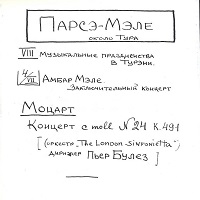 Парсэ-Мэле
около Тура
VIII Музыкальные празднества
в Турэни.
4/VII Амбар Мэле.
Заключительный концерт
Моцарт
Концерт c moll N24 K.491
[(оркестр „The London Sinfonietta")
дирижер Пьер Булез]